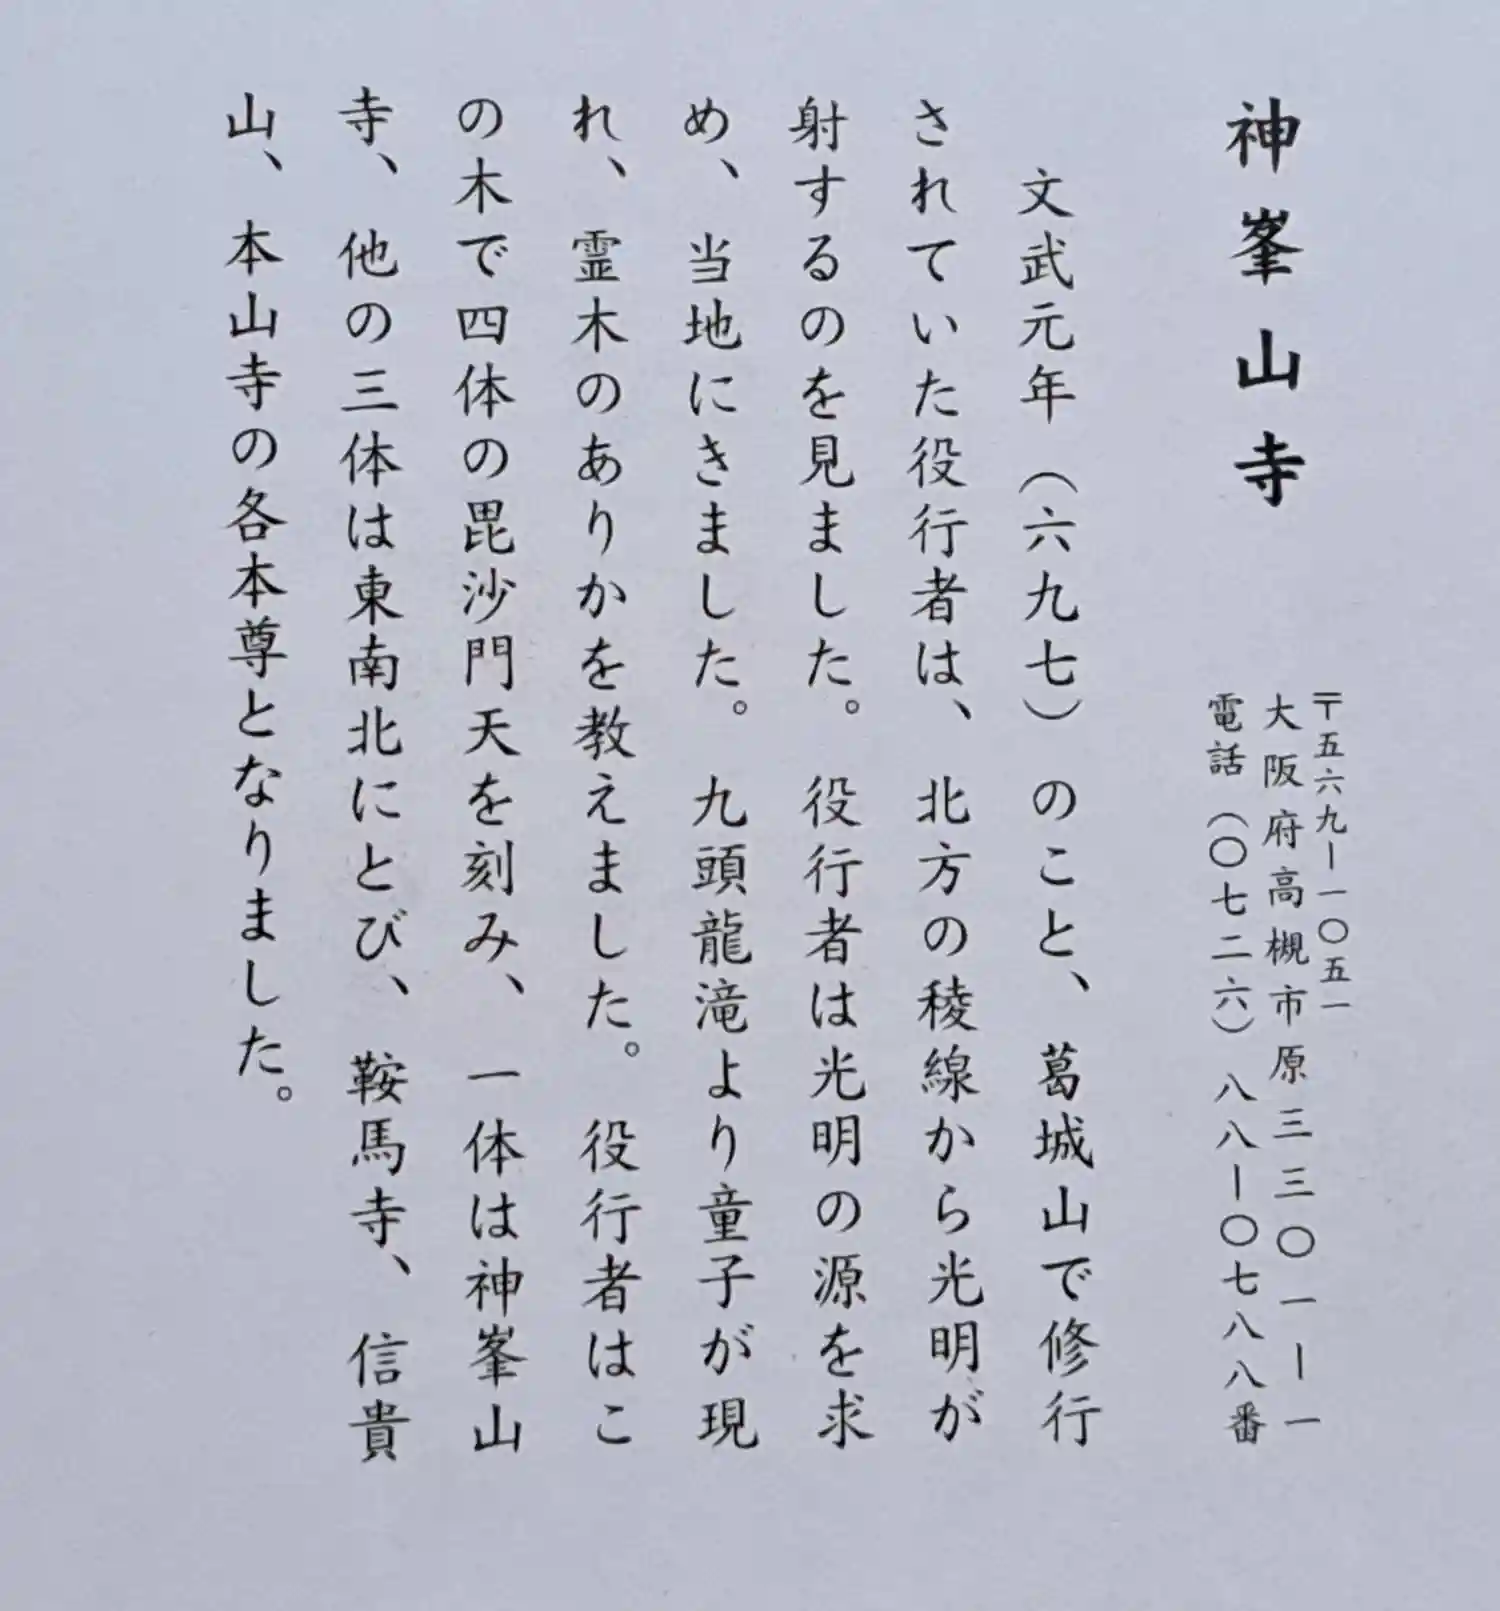 神峯山寺
〒五六九ー一〇五一
大阪府高槻市原三三〇一ー一
電話（〇七二六）八八ー〇七八八番
文武元年（六九七）のこと、葛城山で修行
されていた役行者は、北方の稜線から光明が
射するのを見ました。役行者は光明の源を求
め、当地にきました。九頭龍滝より童子が現
れ、霊木のありかを教えました。役行者はこ
の木で四体の毘沙門天を刻み、一体は神峯山
寺、他の三体は東南北にとび、鞍馬寺、信貴
山、本山寺の各本尊となりました。